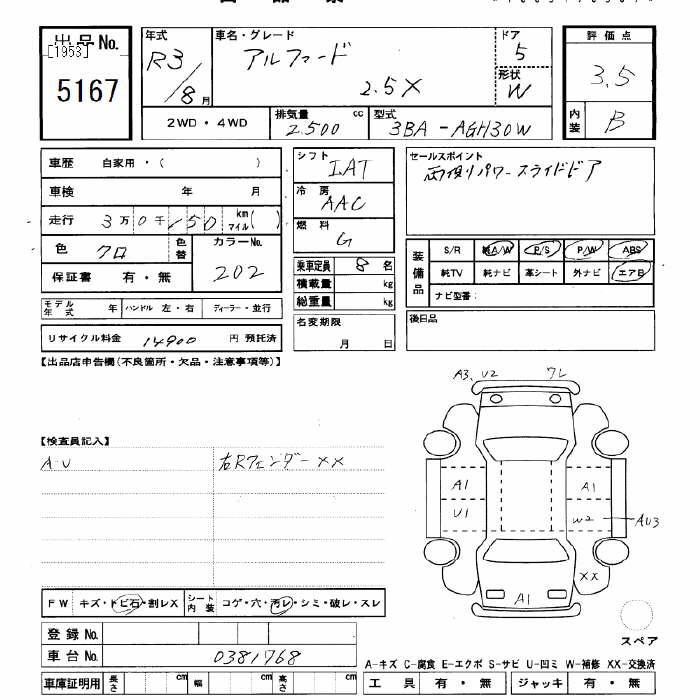 出品No.
[1953]
5167
年式
R3/8月
車名・グレード
アルファード
2.5X
ドア
5
形状
W
評価点
3.5
内装
B
2WD・4WD
排気量 cc
2.500
型式
3BA-AGH30W
車歴 自家用・( )
車検 年 月
走行 3万0千150 km マイル( )
色 クロ 色替
カラーNo.
202
保証書 有・無
モデル年式 年 ハンドル 左・右 ディーラー・並行
リサイクル料金 14900 円 預託済
シフト IAT
冷房 AAC
燃料 G
乗車定員 8 名
積載量 kg
総重量 kg
名変期限
月 日
セールスポイント
両側パワースライドドア
装備品
S/R 純A/W P/S P/W ABS
純TV 純ナビ 革シート 外ナビ エアB
ナビ型番:
後日品
【出品店申告欄(不良箇所・欠品・注意事項等)】
【検査員記入】
A-U 右Rフェンダー××
A3, U2 ワレ
A1 A1
U1 W2 AU3
XX
A1
スペア
FW キズ・トビ石・割レX
シート内装 コゲ・穴・汚レ・シミ・破レ・スレ
登録No.
車台No. 0381768
車庫証明用 長さ cm 幅 cm 高さ cm
A-キズ C-腐食 E-エクボ S-サビ U-凹ミ W-補修 XX-交換済
工具 有・無 ジャッキ 有・無